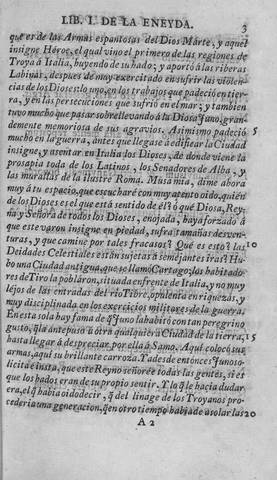 LIB. I. DE LA ENEYDA. 3
que es de las Armas espantosas del Dios Marte, y aquel
insigne Héroe, el qual vino el primero de las regiones de
Troya á Italia, huyendo de su hado; y aportó á las riberas
Labinas, despues de muy exercitado en sufrir las violen-
cias de los Dioses: lo uno, en los trabajos que padeció en tier-
ra, y en las persecuciones que sufrió en el mar; y tambien
tuvo mucho que pasar sobrellevando á la Diosa Juno, gran-
demente memoriosa de sus agravios. Asimismo padeció 5
mucho en la guerra, antes que llegase á edificar la Ciudad
insigne, y asentar en Italia los Dioses, de donde viene la
prosapia toda de los Latinos, los Senadores de Alba, y
las murallas de la ilustre Roma. Musa mia, dime ahora
muy á tu espacio, que escucharé con muy atento oido, quién
de los Dioses es el que está sentido de él? ó qué Diosa, Rey-
na, y Señora de todos los Dioses, enojada, haya forzado á
que este varon insigne en piedad, sufra tamañas desven-
turas, y que camine por tales fracasos? Qué es esto? las 10
Deidades Celestiales están sujetas á semejantes iras? Hu-
bo una Ciudad antigua, que se llamó Cartago; las habitado-
res de Tiro la poblaron, situada enfrente de Italia, y no muy
lejos de las entradas del rio Tibre, opulenta en riquezas, y
muy disciplinada en los exercicios militares de la guerra.
En esta sola hay fama de q̃ Juno la habitó con tan peregrino
gusto, q̃ la antepuso á otra qualquiera Ciudad de la tierra, 15
hasta llegar á despreciar por ella á Samo. Aqui colocó sus
armas, aqui su brillante carroza. Y ades de entonces Juno so-
licita é insta, que este Reyno señoree todas las gentes, si es
que los hados eran de su propio sentir. Y lo q̃ le hacia dudar
era, el q̃ habia oido decir, q̃ del linage de los Troyanos pro-
cederia una generacion, q̃ en otro tiempo habia de asolar las 20
A 2